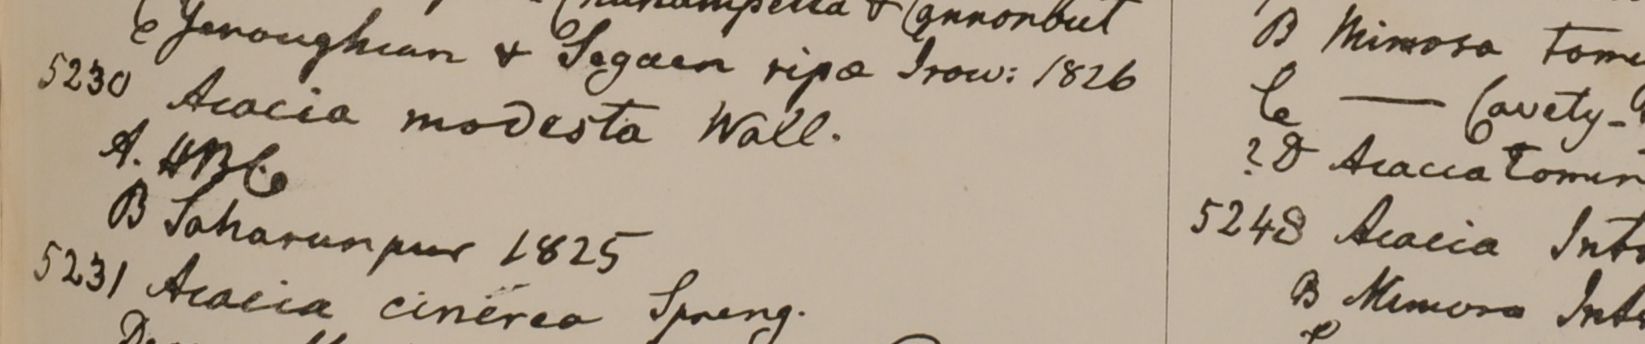 & Cannonbut
C Yenoughuen & Segaen ripa Irow: 1826
5230 Acacia modesta Wall.
A. HBC
B Saharunpur 1825
5231 Acacia cinerea Spreng.
B Mimosa
C — Cavety-
? D Acacia
5248 Acacia
B Mimosa